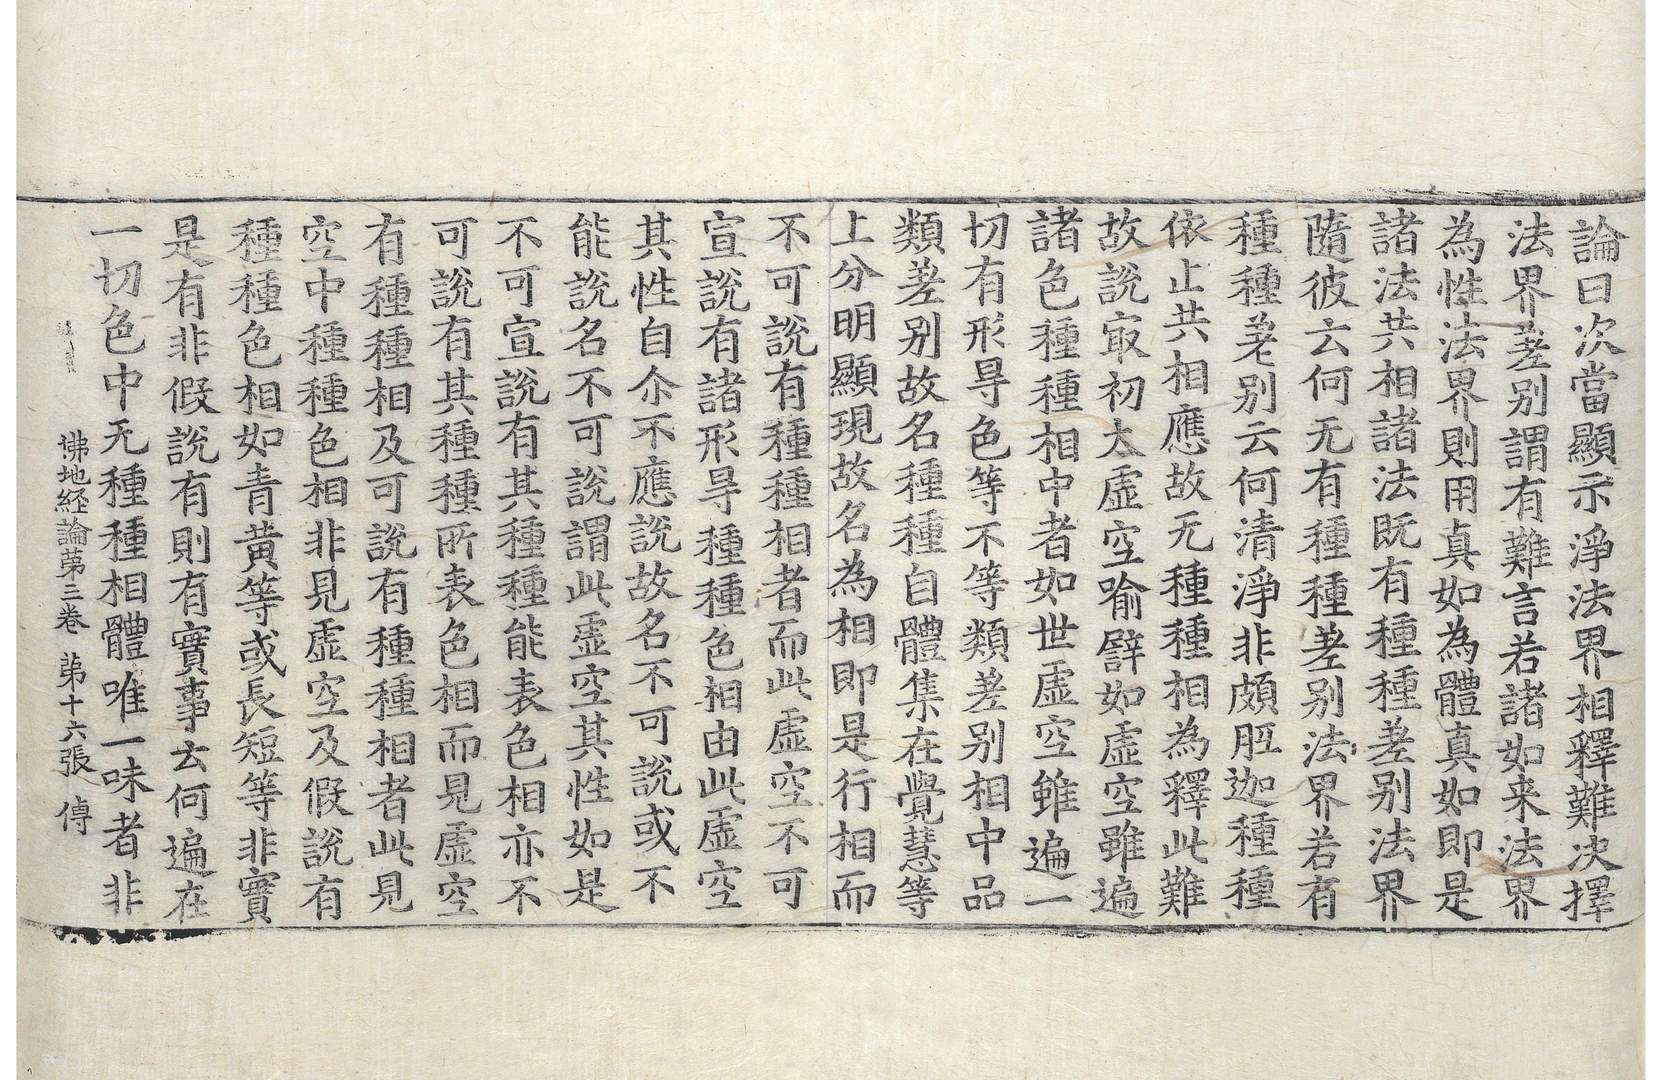 論曰次當顯示淨法界相釋難決擇
法界差别謂有難言若諸如来法界
為性法界則用真如為體真如即是
諸法共相諸法既有種種差别法界
隨彼云何无有種種差别法界若有
種種差别云何清淨非頗胝迦種種
依止共相應故无種種相為釋此難
故說㝡初太虛空喻譬如虛空雖遍
諸色種種相中者如世虛空雖遍一
切有形㝵色等不等類差别相中品
類差别故名種種自體集在覺慧等
上分明顯現故名為相即是行相而
不可說有種種相者而此虛空不可
宣說有諸形㝵種種色相由此虛空
其性自尒不應說故名不可說或不
能說名不可說謂此虛空其性如是
不可宣說有其種種能表色相亦不
可說有其種種所表色相而見虛空
有種種相及可說有種種相者此見
空中種種色相非見虛空及假說有
種種色相如青黄等或長短等非實
是有非假說有則有實事云何遍在
一切色中无種種相體唯一味者非
佛地経論第三卷 第十六張 傅